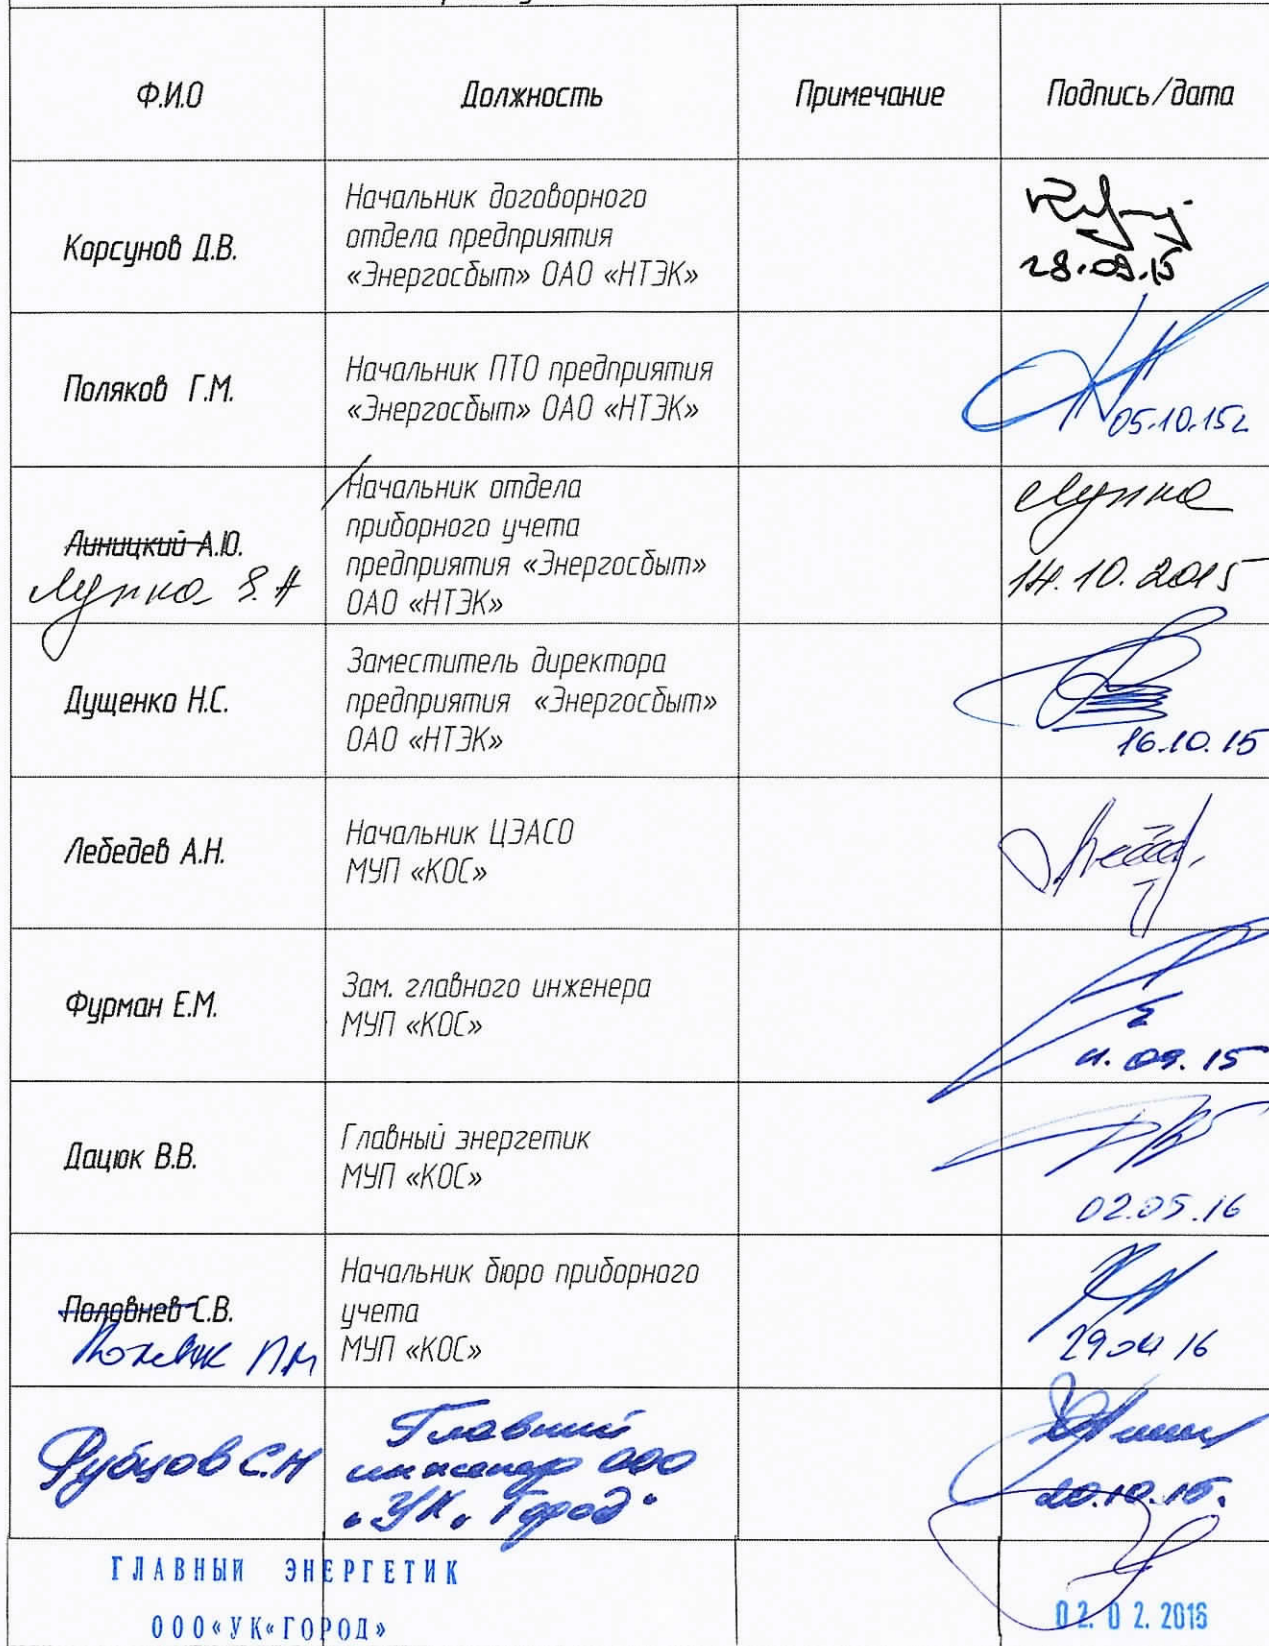 Ф.И.О
Должность
Примечание
Подпись/дата
Корсунов Д.В.
Начальник договорного
отдела предприятия
«Энергосбыт» ОАО «НТЭК»
28.09.15
Поляков Г.М.
Начальник ПТО предприятия
«Энергосбыт» ОАО «НТЭК»
05.10.15г
Линицкий А.Ю.
Лупка
Начальник отдела
приборного учета
предприятия «Энергосбыт»
ОАО «НТЭК»
Лупка
14.10.2015
Дущенко Н.С.
Заместитель директора
предприятия «Энергосбыт»
ОАО «НТЭК»
16.10.15
Лебедев А.Н.
Начальник ЦЭАСО
МУП «КОС»
Фурман Е.М.
Зам. главного инженера
МУП «КОС»
09.15
Дацюк В.В.
Главный энергетик
МУП «КОС»
02.05.16
Половнев С.В.
П.М
Начальник бюро приборного
учета
МУП «КОС»
29 04 16
Рубцов С.Н
Главный
инженер ООО
"УК "Город"
20.10.15.
ГЛАВНЫЙ ЭНЕРГЕТИК
ООО«УК«ГОРОД»
02.02.2016